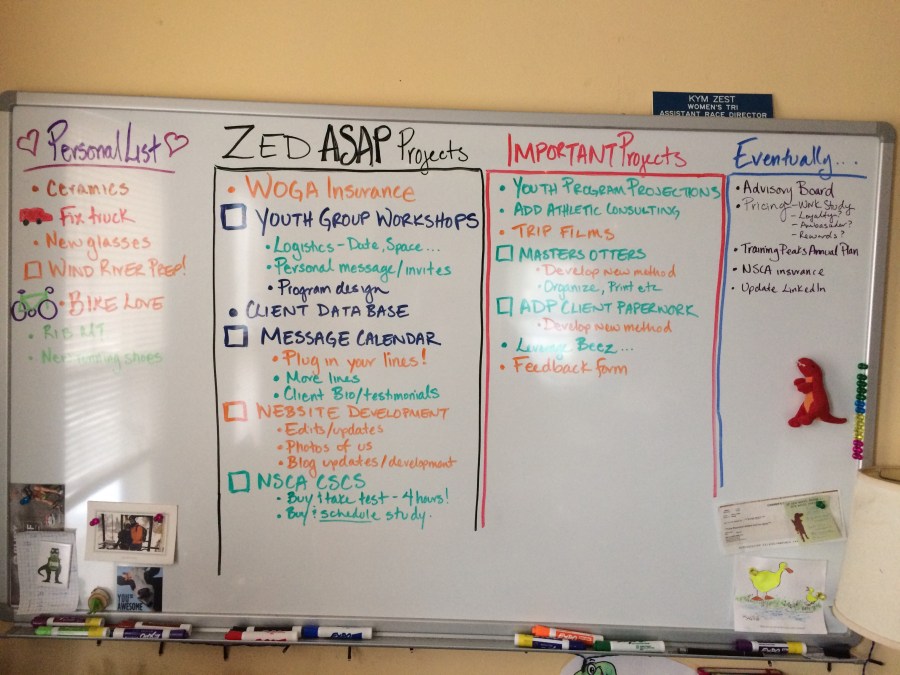 KYM ZEST
WOMEN'S TRI
ASSISTANT RACE DIRECTOR
Personal List
• Ceramics
Fix truck
• New glasses
WIND RIVER PREP!
• BIKE LOVE
• New running shoes
ZED ASAP Projects
• WOGA Insurance
YOUTH GROUP WORKSHOPS
• Logistics - Date, Space...
• Personal message/invites
• Program design
• CLIENT DATA BASE
MESSAGE CALENDAR
• Plug in your lines!
• More lines
• Client Bio/testimonials
WEBSITE DEVELOPMENT
• Edits/updates
• Photos of us
• Blog updates/development
NSCA CSCS
• Buy & take test - 4 hours!
• Buy & schedule study.
IMPORTANT Projects
• YOUTH PROGRAM PROJECTIONS
• ADD ATHLETIC CONSULTING
• TRIP FILMS
MASTERS OTTERS
• Develop new method
• Organize, Print etc
ADP CLIENT PAPERWORK
• Develop new method
• Leverage Beez...
• Feedback form
Eventually....
• Advisory Board
• Pricing - Work Study
- Loyalty?
- Ambassador?
- Rewards?
• Training Peaks Annual Plan
• NSCA insurance
• Update LinkedIn
YOU'RE
AWESOME
EXPO